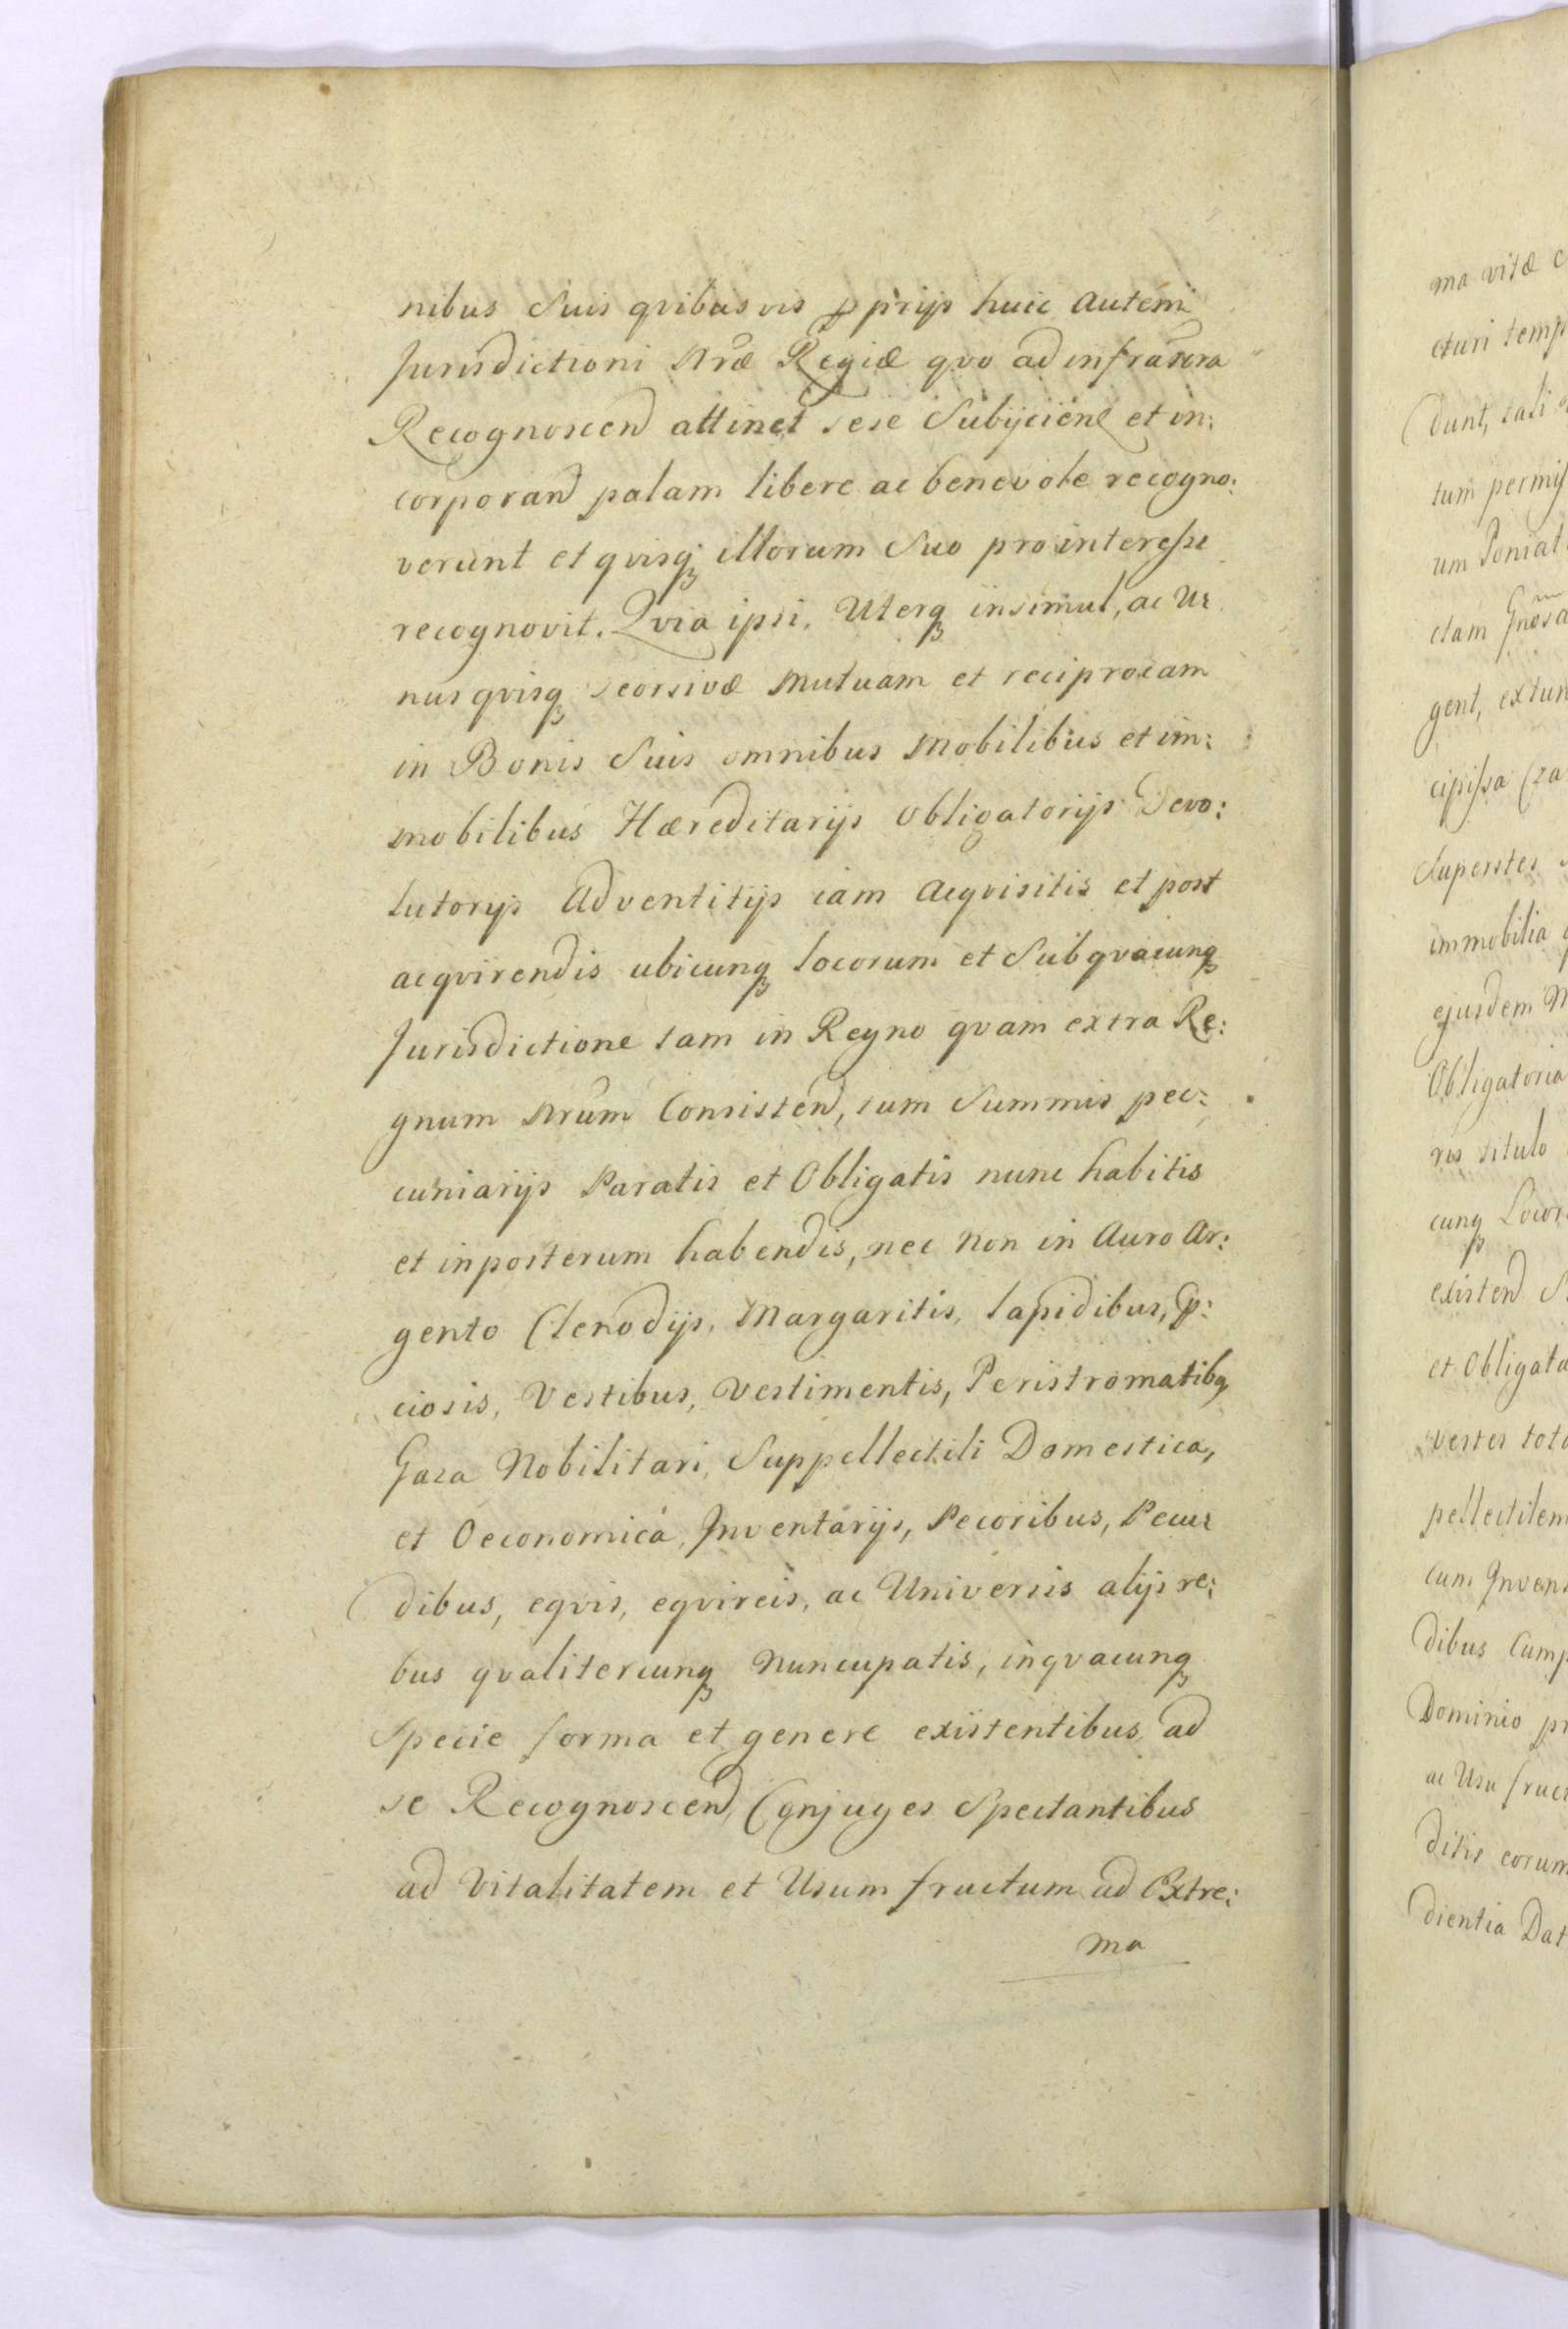 nibus Suis qvibusvis pprijs huic autem
Jurisdictioni Nræ Regiæ qvo ad infrascra
Recognoscend attinet sese Subijcien et in:
corporand palam libere ac benevole recogno:
verunt et qvisq illorum Suo pro interesse
recognovit. Qvia ipsi, Uterq insimul, ac U:
nusqvisq seorsivæ mutuam et reciprocam
in Bonis Suis omnibus mobilibus et im:
mobilibus Hæreditarijs obligatorijs Devo:
lutorijs Adventitijs iam acqvisitis et post
acqvirendis ubicunq locorum et Sub qvacunq
Jurisdictione tam in Regno qvam extra Re:
gnum Nrum Consistend, tum Summis pec:
cuniarijs Paratis et Obligatis nunc habitis
et inposterum habendis, nec non in Auro Ar:
gento Clenodijs, Margaritis, lapidibus, p:
ciosis, Vestibus, vestimentis, Peristromatibq
Gaza Nobilitari, Suppellectili Domestica,
et Oeconomica, Inventarijs, Pecoribus, Pecu:
dibus, eqvis, eqvireis, ac Universis alijs re:
bus qvalitercunq nuncupatis, inqvacunq
Specie forma et genere existentibus, ad
se Recognoscend Conjuges Spectantibus
ad Vitalitatem et Usum fructum ad Extre:
ma
ma vitæ
cturi temp
Dunt, tali
tum permis
um Poniat
ctam Gnosa
gent, extun
cipissa Cza
Superstes
immobilia
ejusdem
Obligatoria
ris titulo
cunq Locor
existend
et Obligata
vestes tot
pellectilem
cum Invent
dibus Camp
Dominio pr
ac Usu fruct
ditis eorum
dientia Dat